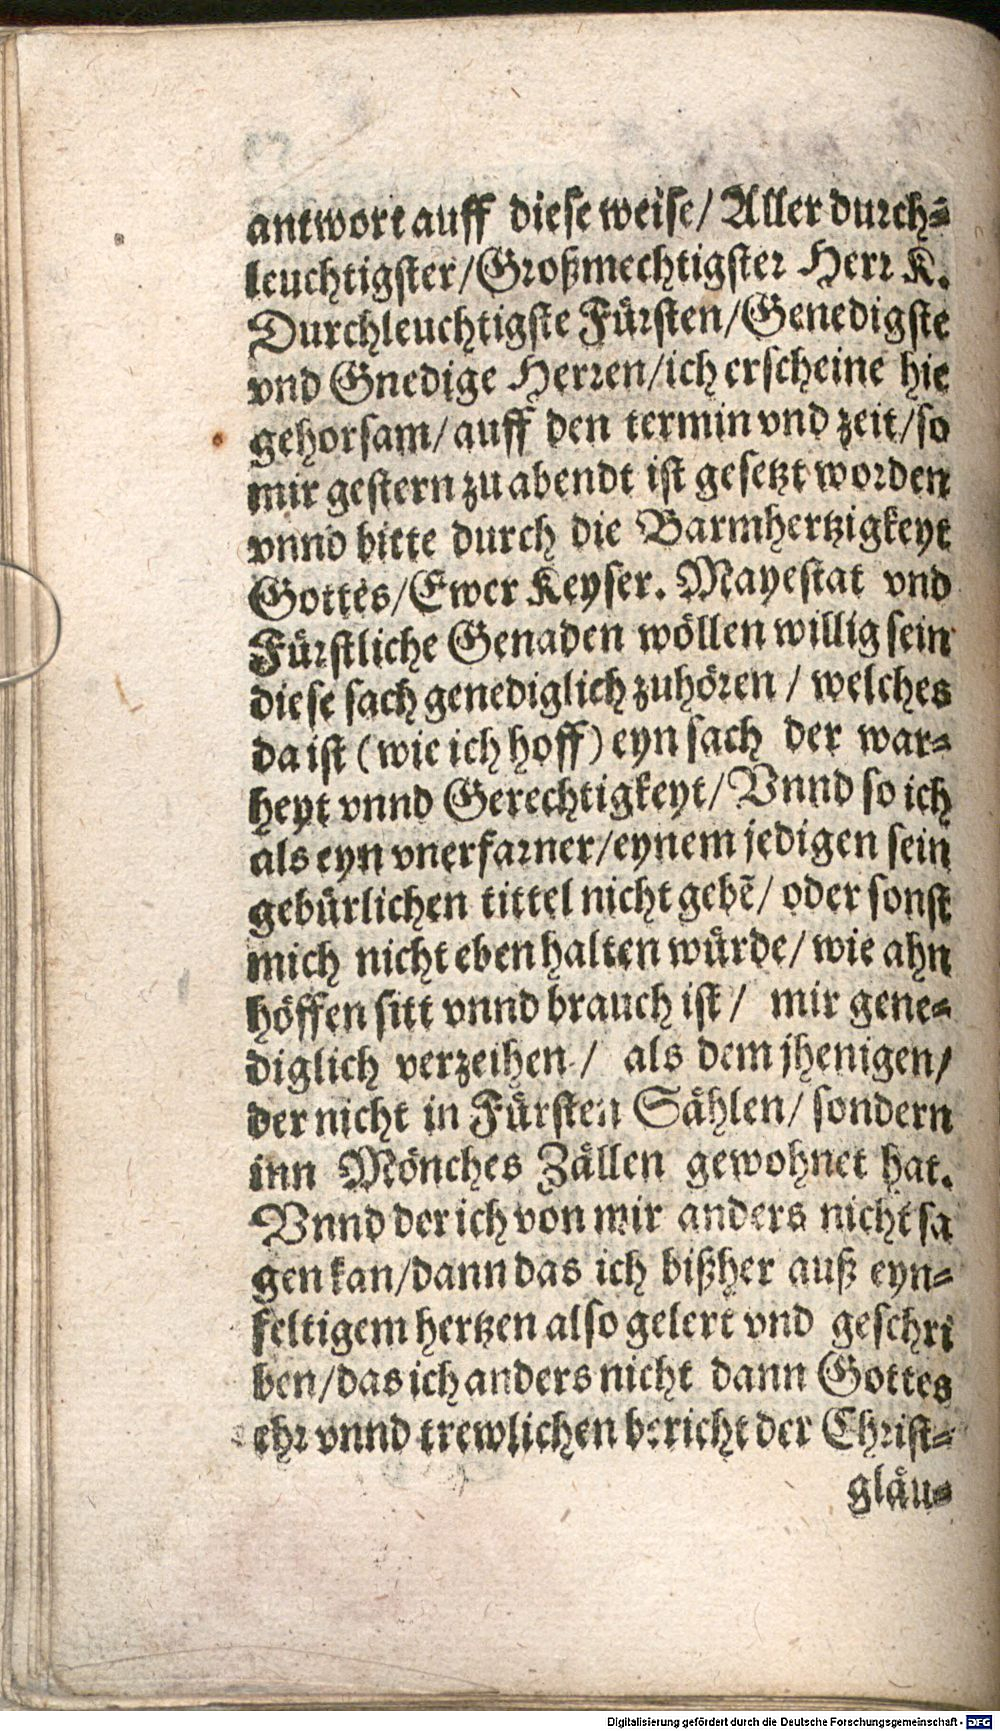 antwort auff diese weise/ Aller durch-
leuchtigster/ Großmechtigster Herr K.
Durchleuchtigste Fürsten/ Genedigste
vnd Gnedige Herren/ ich erscheine hie
gehorsam/ auff den termin vnd zeit/ so
mir gestern zu abendt ist gesetzt worden
vnnd bitte durch die Barmhertzigkeyt
Gottes/ Ewer Keyser. Mayestat vnd
Fürstliche Genaden wöllen willig sein
diese sach genediglich zuhören / welches
da ist (wie ich hoff) eyn sach der war-
heyt vnnd Gerechtigkeyt/ Vnnd so ich
als eyn vnerfarner/ eynem jedigen sein
gebürlichen tittel nicht gebẽ/ oder sonst
mich nicht eben halten würde/ wie ahn
höffen sitt vnnd brauch ist / mir gene-
diglich verzeihen / als dem jhenigen/
der nicht in Fürsten Sählen/ sondern
inn Mönches Zällen gewohnet hat.
Vnnd der ich von mir anders nicht sa
gen kan/ dann das ich bißher auß eyn-
feltigem hertzen also gelert vnd geschri
ben/ das ich anders nicht dann Gottes
ehr vnnd trewlichen bericht der Christ-
gläu-
Digitalisierung gefördert durch die Deutsche Forschungsgemeinschaft - DFG